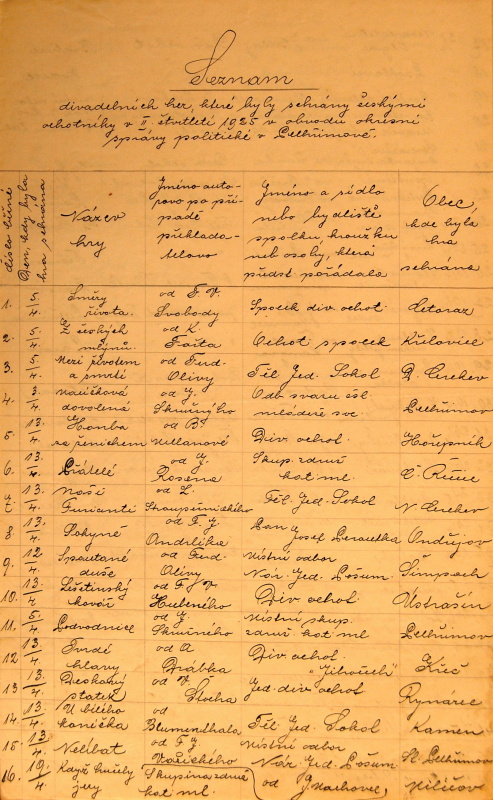 Seznam
divadelních her, které byly sehrány českými
ochotníky v II. čtvrtletí 1925 v obvodu okresní
správy politické v Pelhřimově.
číslo běžné
Den, kdy byla hra sehrána
Název hry
Jméno autorovo po případě překladatelovo
Jméno a sídlo nebo bydliště spolku, kroužku neb osoby, která předst. pořádala
Obec, kde byla hra sehrána
1. 5/4 Směry života. od F. X. Svobody Spolek div. ochot. Cetoraz
2. 5/4 Ze českých mlýnů. od K. Fořta Ochot spolek Křelovice
3. 5/4 Mezi životem a smrtí od Ferd. Olivy Těl. Jed. Sokol R. Cerekev
4. 3/4 dovolená od J. Skružného Odb. svazu čsl. mládeže soc. Pelhřimov
5. 13/4 Honba za ženichem od Div. ochot. Hořepník
6. 13/4 Přátelé od J. Rosena Skup. združ kat. ml. Č. Řečice
7. 13/4 Naši Furianti od L. Stroupežnického Těl. Jed. Sokol N. Cerekev
8. 13/4 od F. J. Ondrlíka Pan Josef Ondřejov
9. 12/4 Spoutané duše od Ferd. Olivy Místní odbor Nár. Jed. Pošum. Šimpach
10. 13/4 Lešetínský kovář od F. X. Hubeného Div ochot Ústrašín
11. 5/4 Podvodnice od J. Skružného Místní skup. združ kat ml Pelhřimov
12 13/4 Tvrdé hlavy od A Brabka Div. ochot. "Jihoušek" Křeč
13 13/4 Pleskaný statek od V. Štecha Jed. div ochot Rynárec
14. 13/4 U bílého koníčka od Blumenthala Těl. Jed. Sokol Kámen
15. 13/4 Nelibat od F. J. Místní odbor Nár. Jed. Pošum. St. Pelhřimov
16. 19/4 Když hučely jezy Skupina združ kat ml. od J. Machovec,